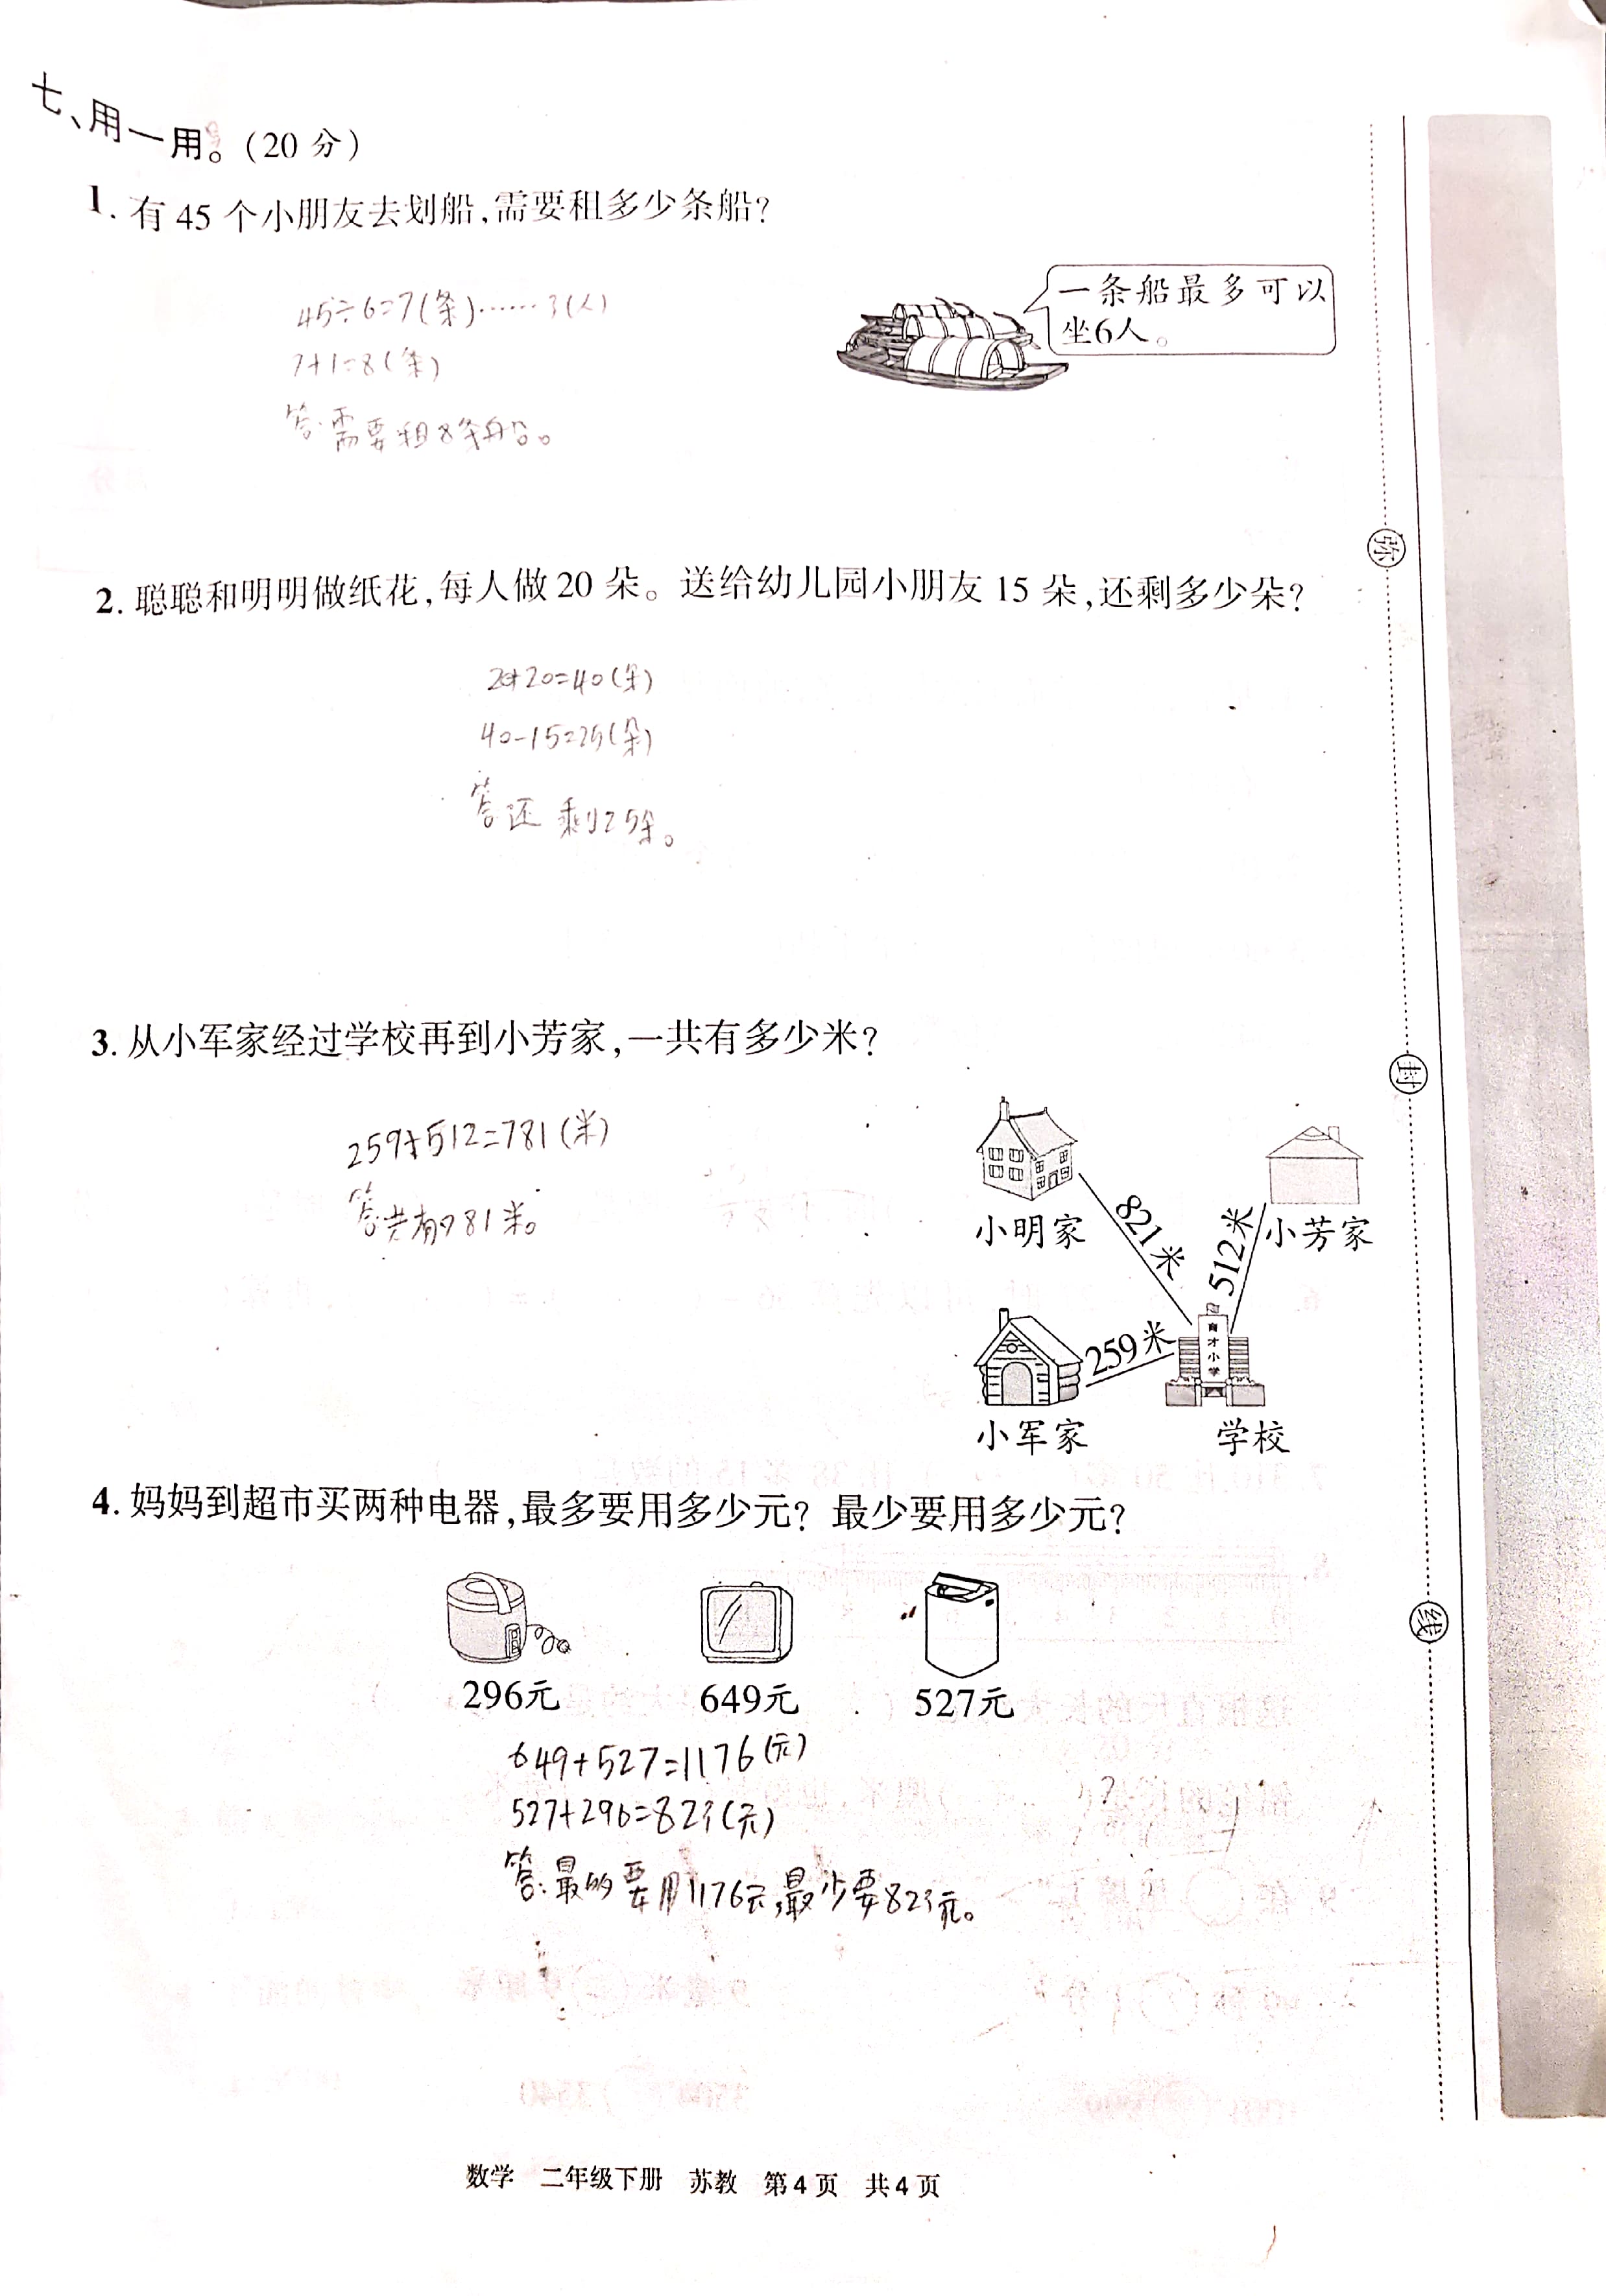 七、用一用。(20 分)
1. 有 45 个小朋友去划船,需要租多少条船?
一条船最多可以
坐6人。
45÷6=7(条)……3(人)
7+1=8(条)
答:需要租8条船。
2. 聪聪和明明做纸花,每人做 20 朵。送给幼儿园小朋友 15 朵,还剩多少朵?
20+20=40(朵)
40-15=25(朵)
答:还剩25朵。
3. 从小军家经过学校再到小芳家,一共有多少米?
259+512=781(米)
答:共有781米。
小明家
821米
512米
小芳家
259米
育才小学
小军家
学校
4. 妈妈到超市买两种电器,最多要用多少元? 最少要用多少元?
296元 649元 527元
649+527=1176(元)
527+296=823(元)
答:最的要用1176元,最少要823元。
弥
封
线
数学 二年级下册 苏教 第4页 共4页